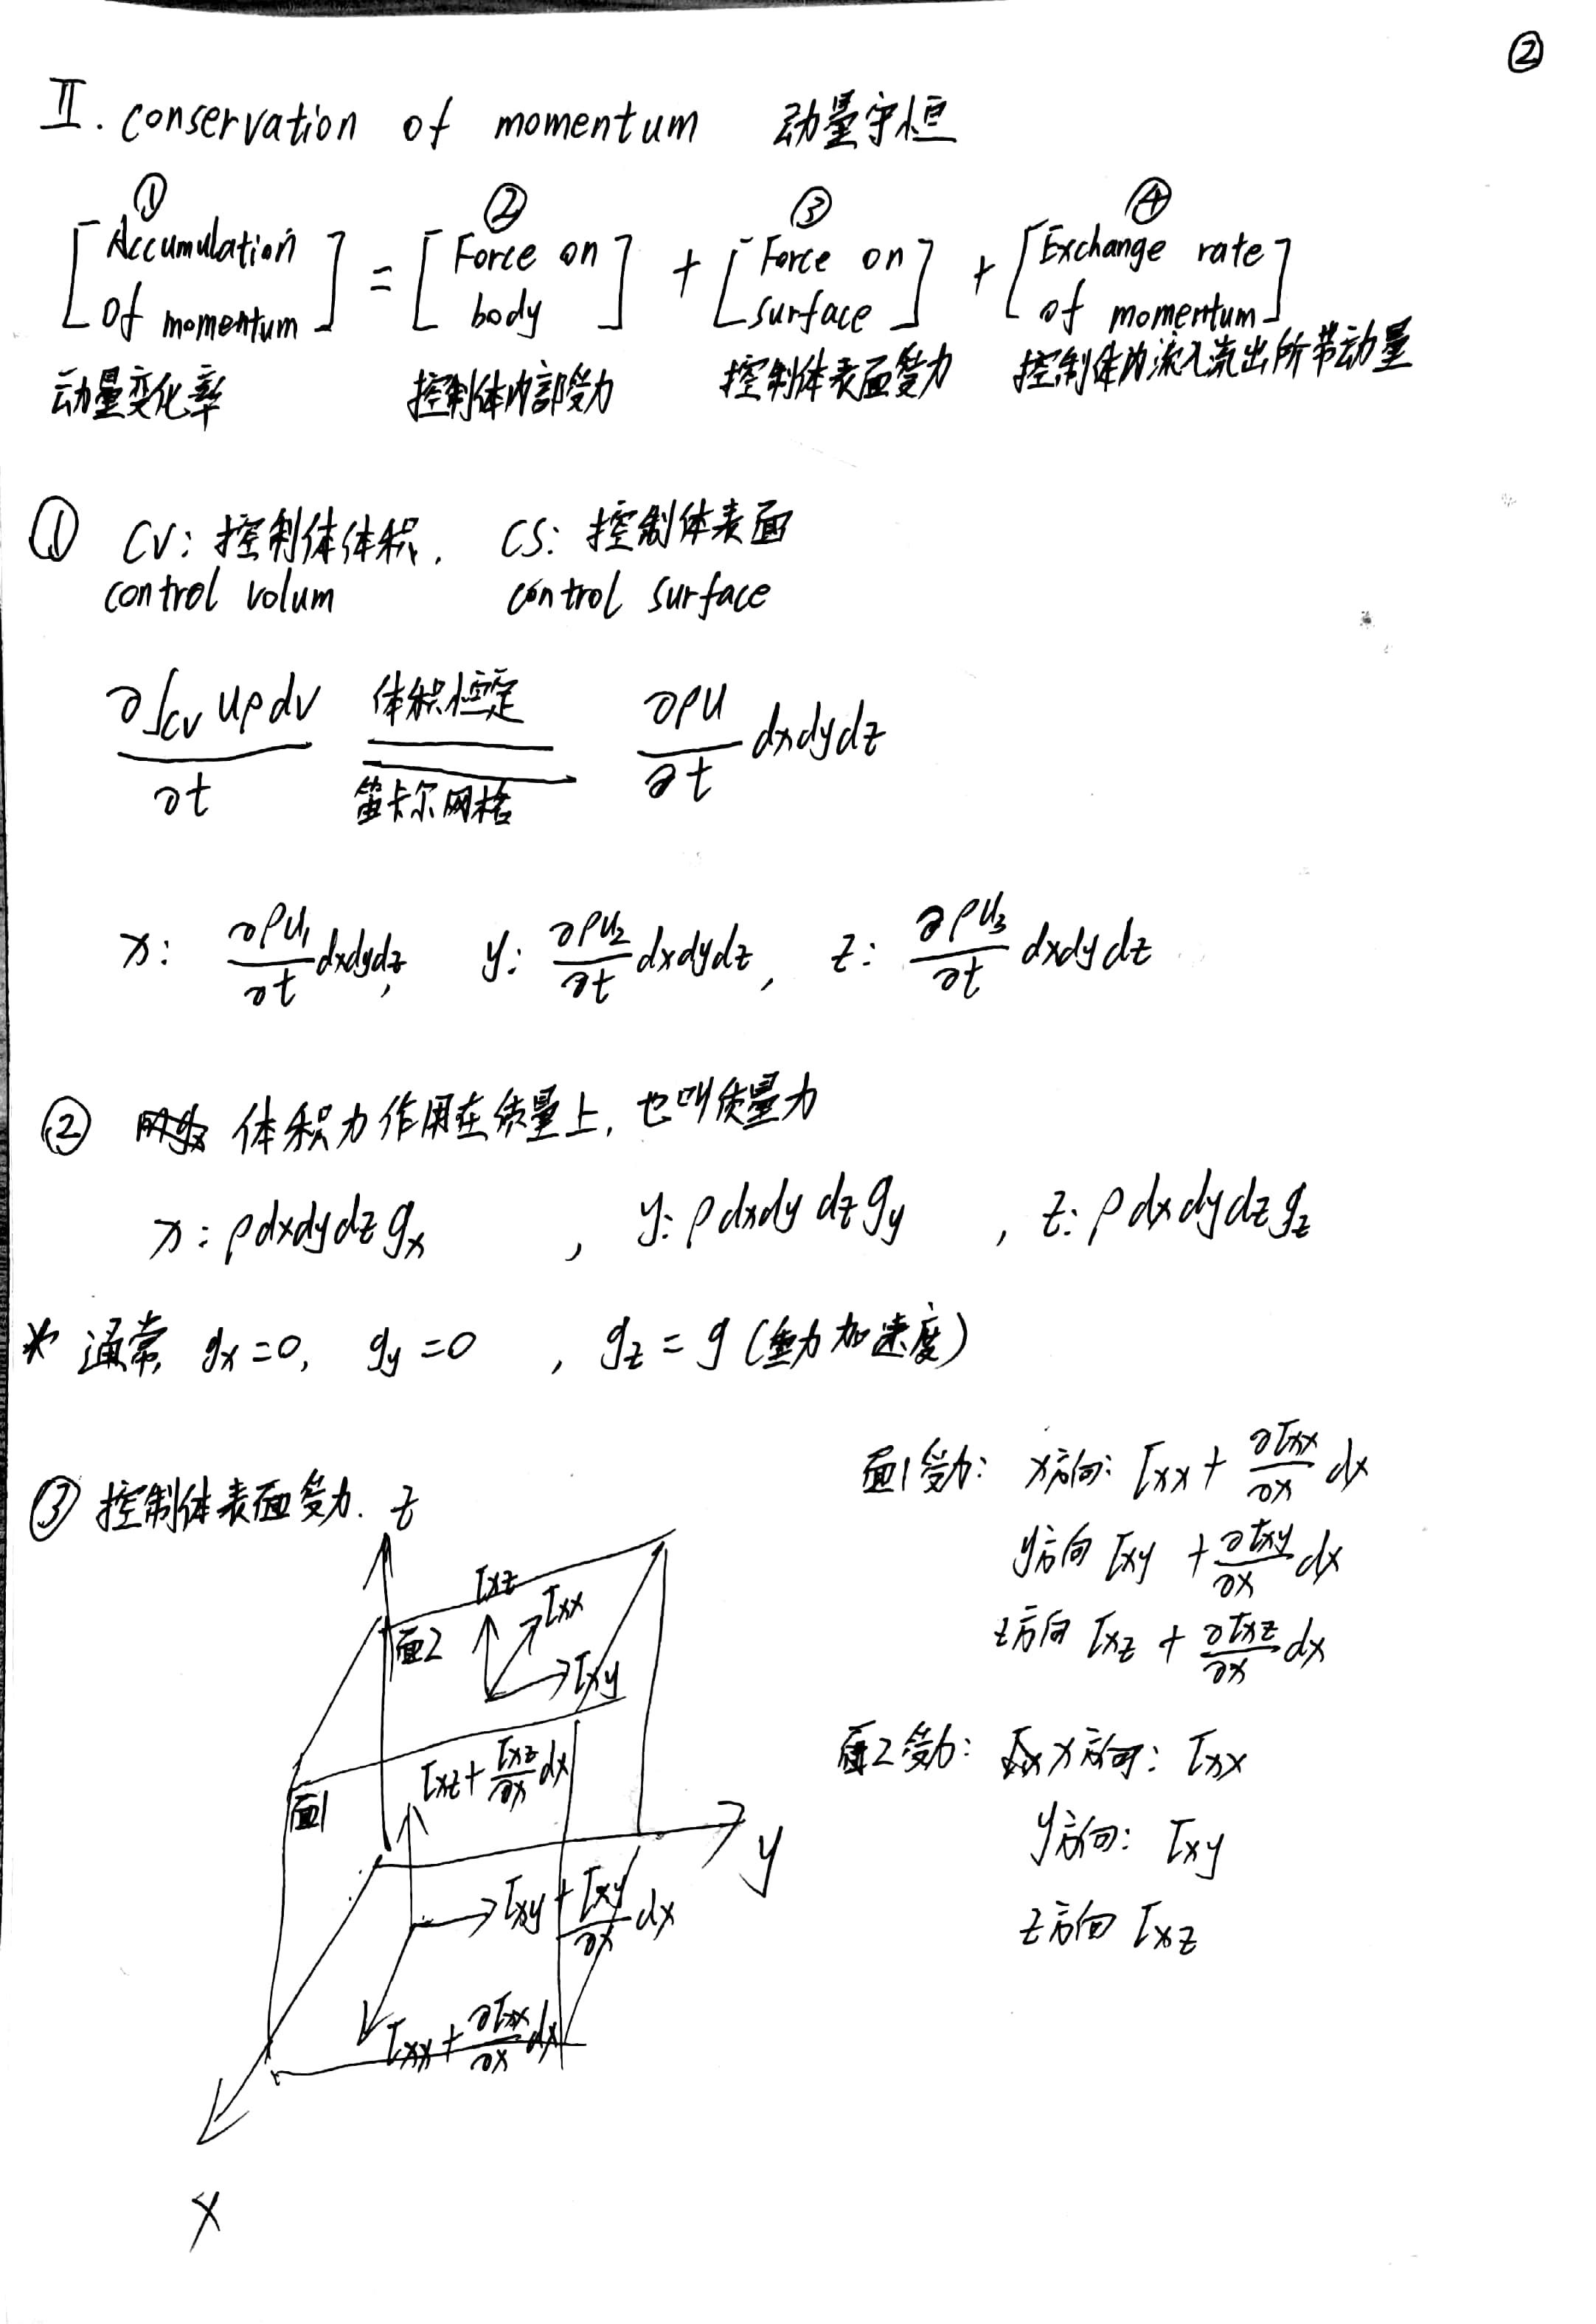 ②
Ⅱ. conservation of momentum 动量守恒
① ② ③ ④
[Accumulation of momentum] = [Force on body] + [Force on surface] + [Exchange rate of momentum]
动量变化率 控制体内部受力 控制体表面受力 控制体内流入流出所带动量
① CV: 控制体体积. CS: 控制体表面
control volum control surface
∂∫cv uρdv / ∂t 体积恒定 笛卡尔网格 ∂ρu/∂t dxdydz
x: ∂ρu₁/∂t dxdydz, y: ∂ρu₂/∂t dxdydz, z: ∂ρu₃/∂t dxdydz
② 体积力作用在质量上, 也叫质量力
x: ρdxdydz gx , y: ρdxdydz gy , z: ρdxdydz gz
* 通常, gx=0, gy=0 , gz=g (重力加速度)
③ 控制体表面受力.
z
面2
τxz
τxx
τxy
面1
τxz + τxz/∂x dx
y
τxy + τxy/∂x dx
τxx + ∂τxx/∂x dx
x
面1受力: x方向: τxx + ∂τxx/∂x dx
y方向 τxy + ∂τxy/∂x dx
z方向 τxz + ∂τxz/∂x dx
面2受力: x方向: τxx
y方向: τxy
z方向 τxz